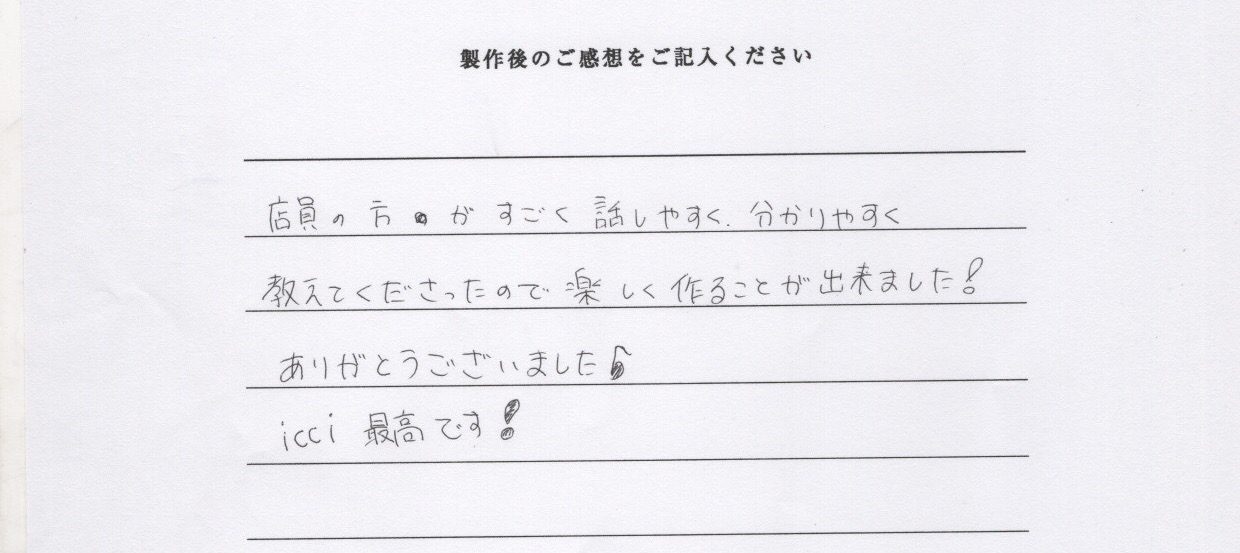 製作後のご感想をご記入ください
店員の方がすごく話しやすく、分かりやすく
教えてくださったので楽しく作ることが出来ました!
ありがとうございました♪
icci 最高です!